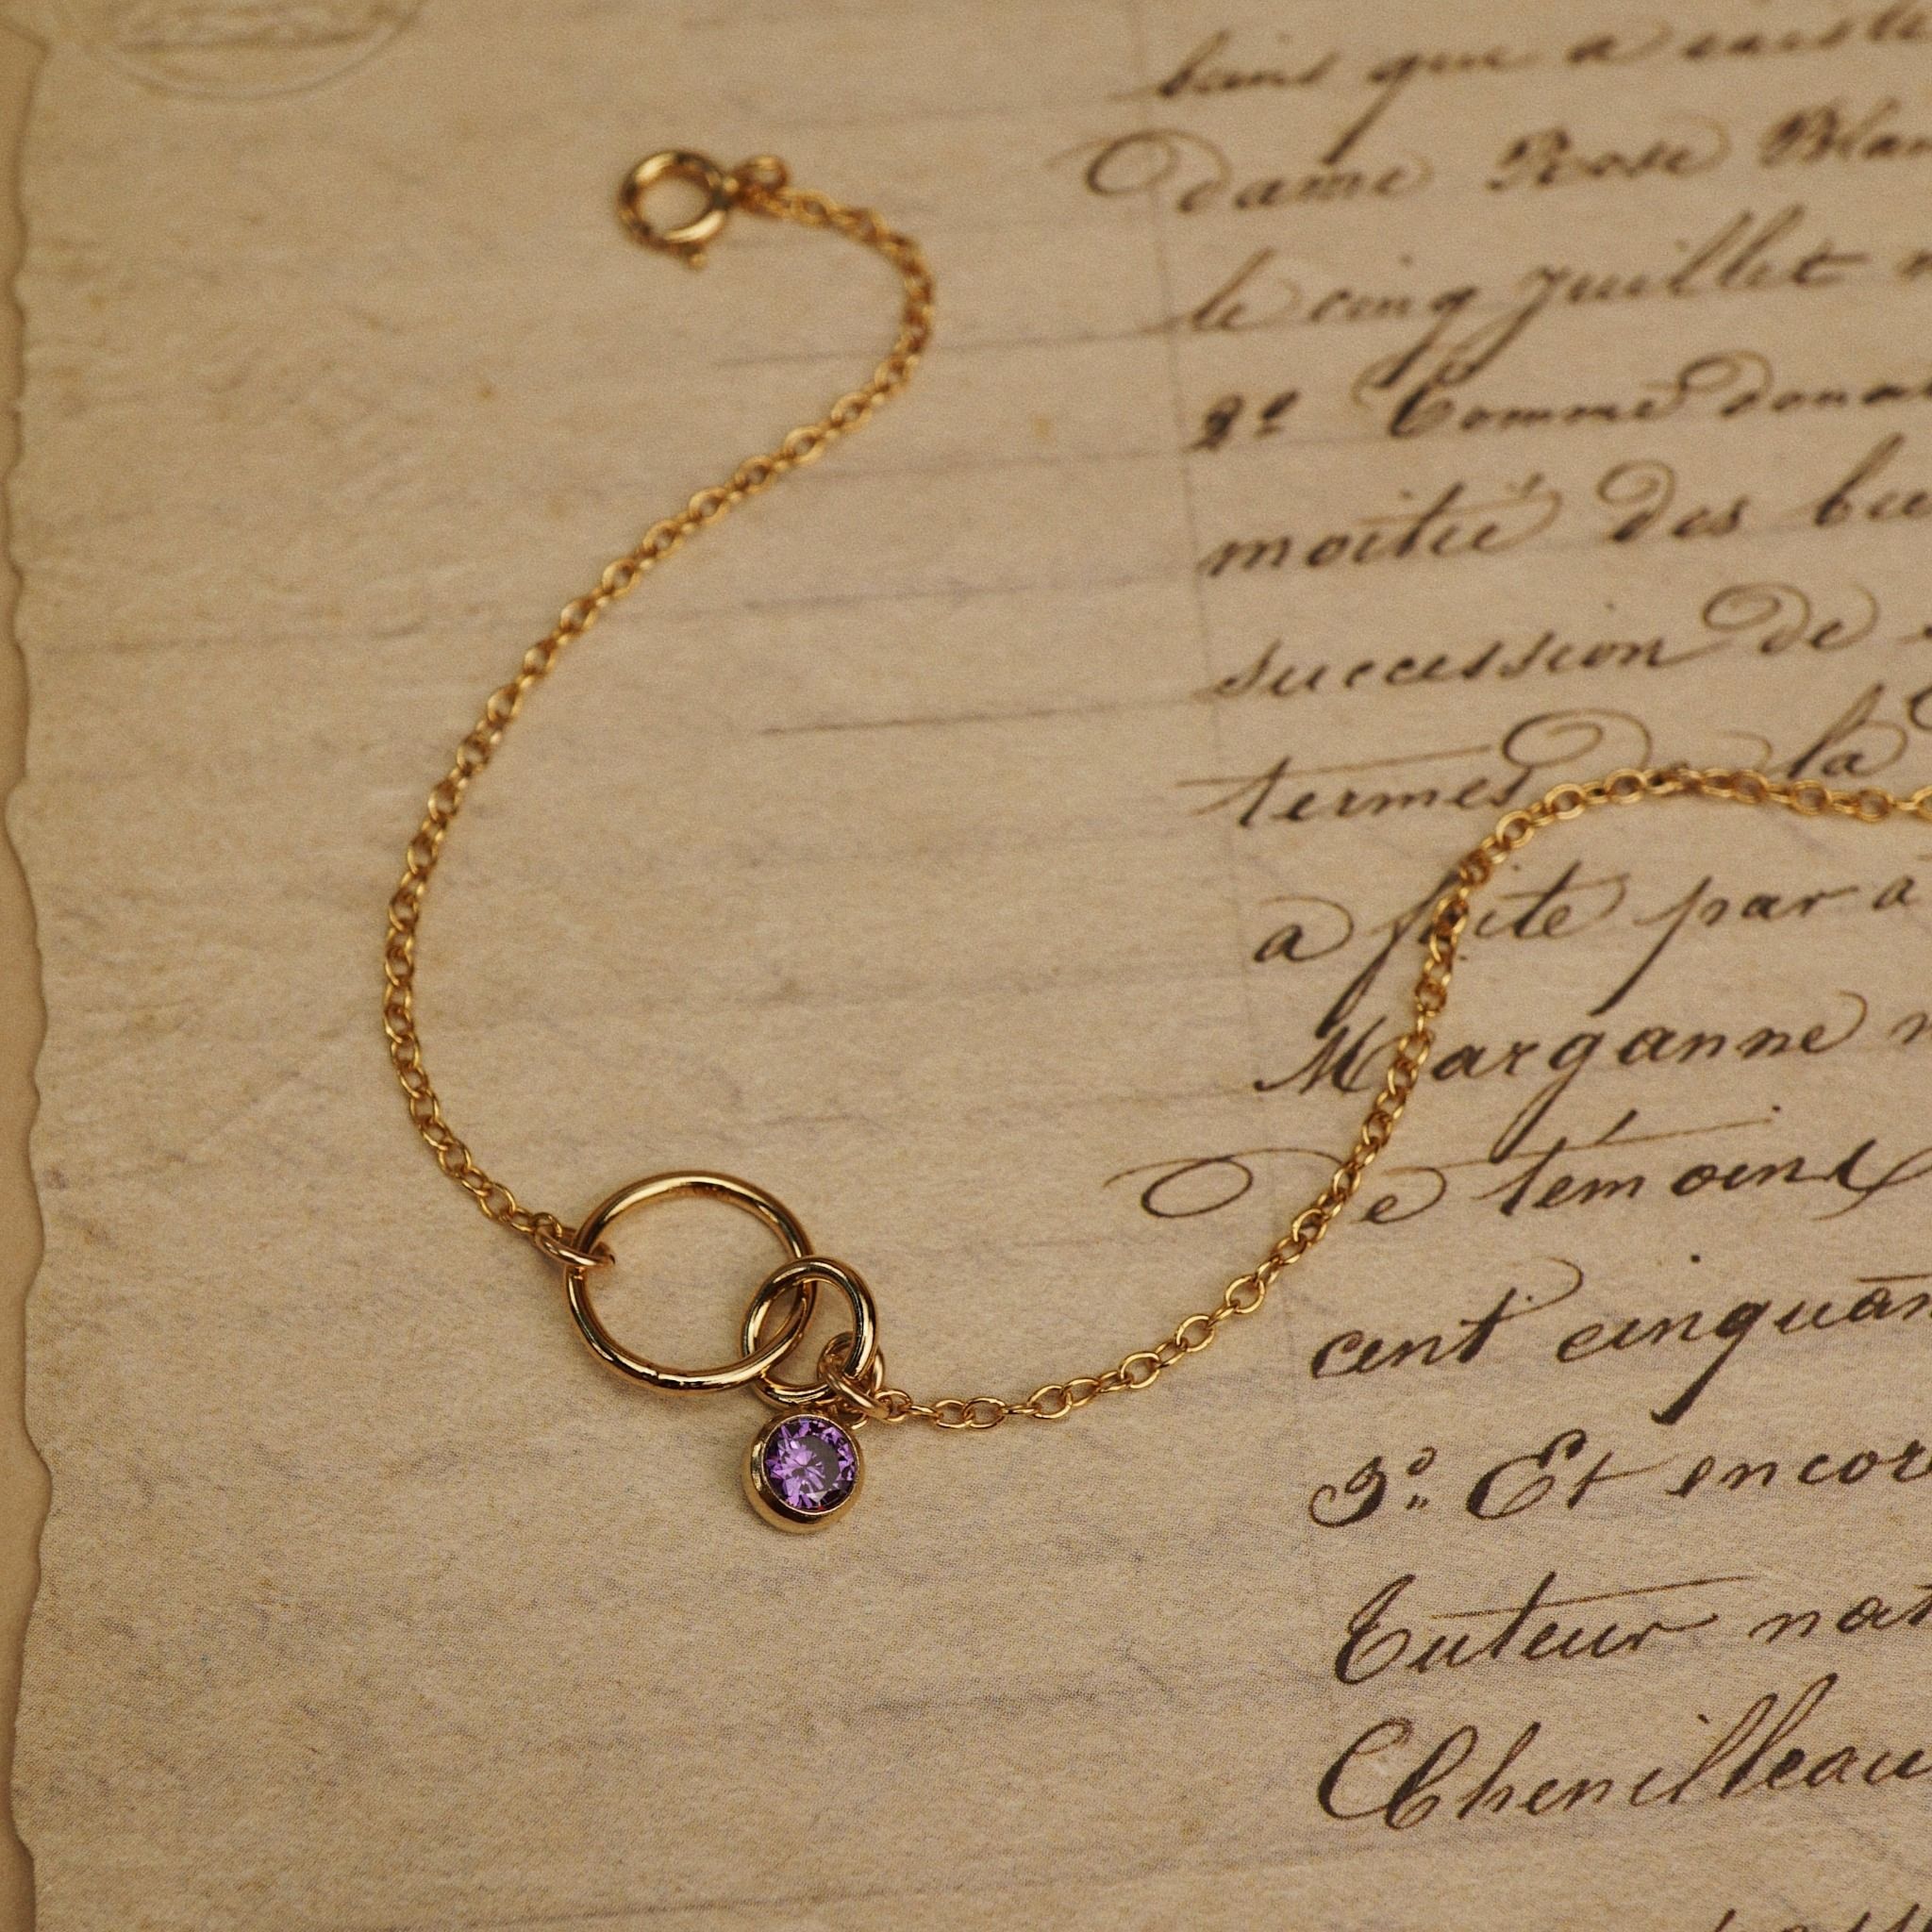 biens que a existé
Dame Rose Blan
le cinq Juillet
2º Comme donat
moitié des bie
succession de
termes de la
a faite par a
Marganne
De témoins
cent cinquan
3º. Et encore
Tuteur nat
Chenilleau